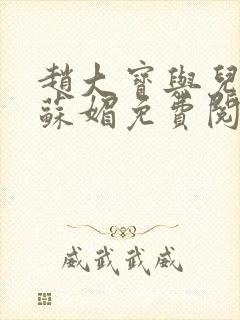 趙大寶與兒
蘇媚免費閱
威武武威